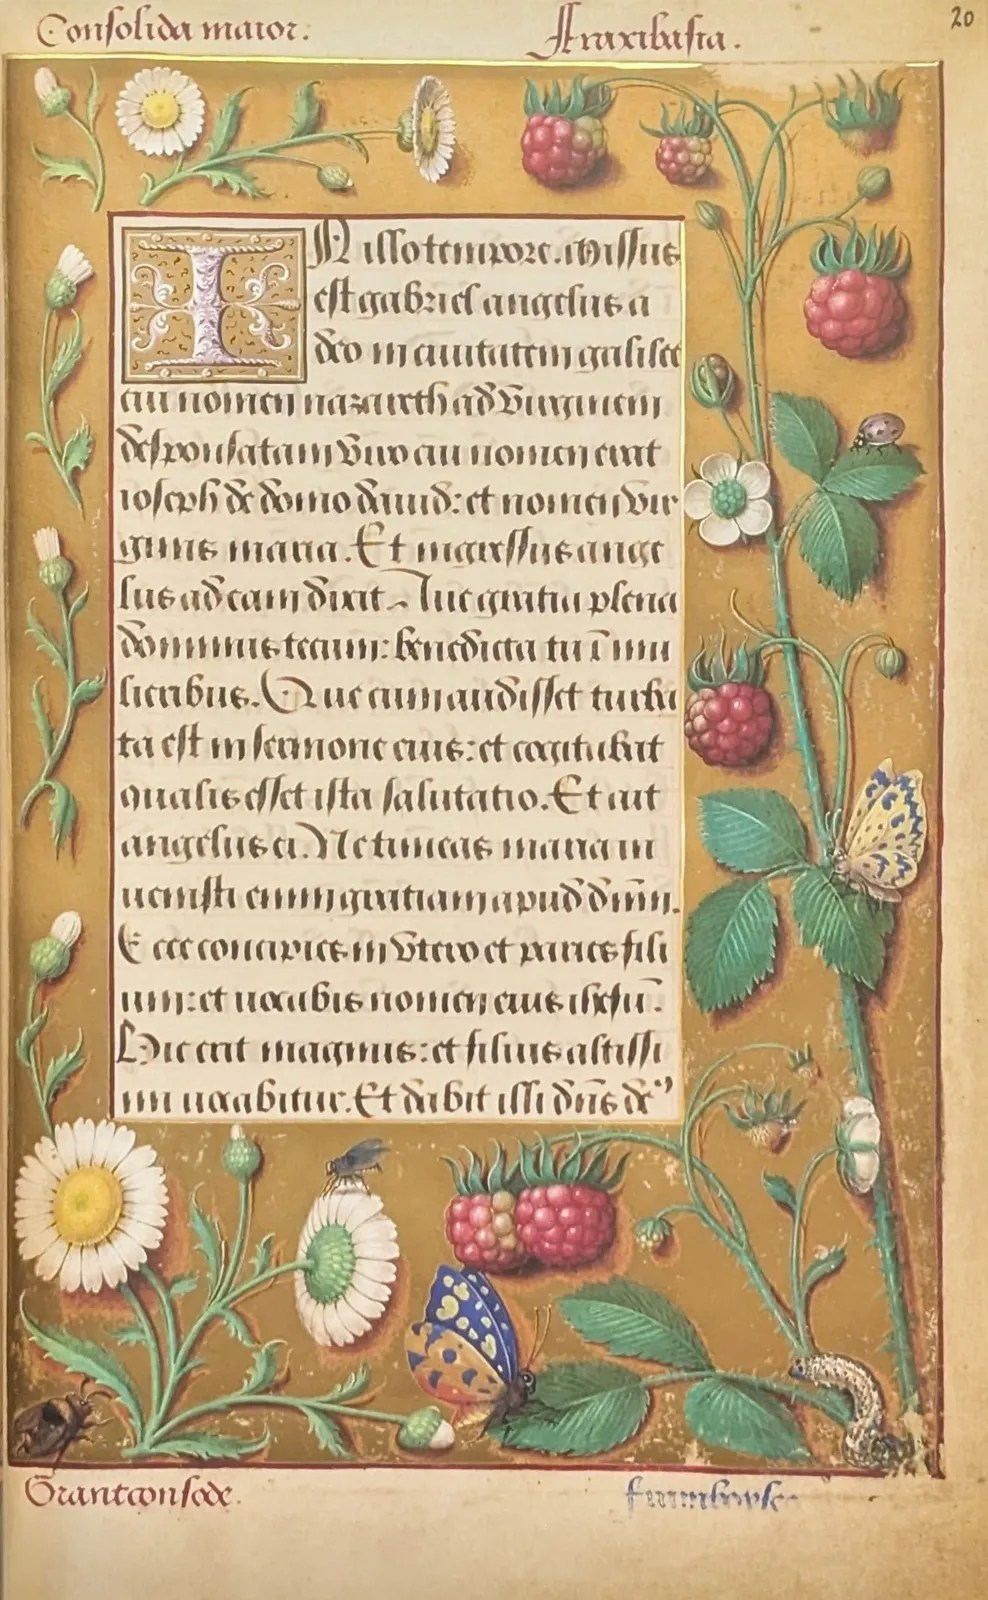 Consolida maior.
Fraxibasia.
20
IN illo tempore. Missus
est gabriel angelus a
deo in ciuitatem galilee
cui nomen nazareth ad virginem
desponsatam viro cui nomen erat
ioseph de domo dauid: et nomen vir
ginis maria. Et ingressus ange
lus ad eam dixit. Aue gratia plena
dominus tecum: benedicta tu ī mu
lieribus. Que cum audisset turba
ta est in sermone eius: et cogitabat
qualis esset ista salutatio. Et ait
angelus ei. Ne timeas maria in
uenisti enim gratiam apud dnm̄.
Ecce concipies in vtero et paries fili
um: et uocabis nomen eius ihesū.
Hic erit magnus: et filius altissi
mi uocabitur. Et dabit illi dn̄s deꝰ
Grant consode.